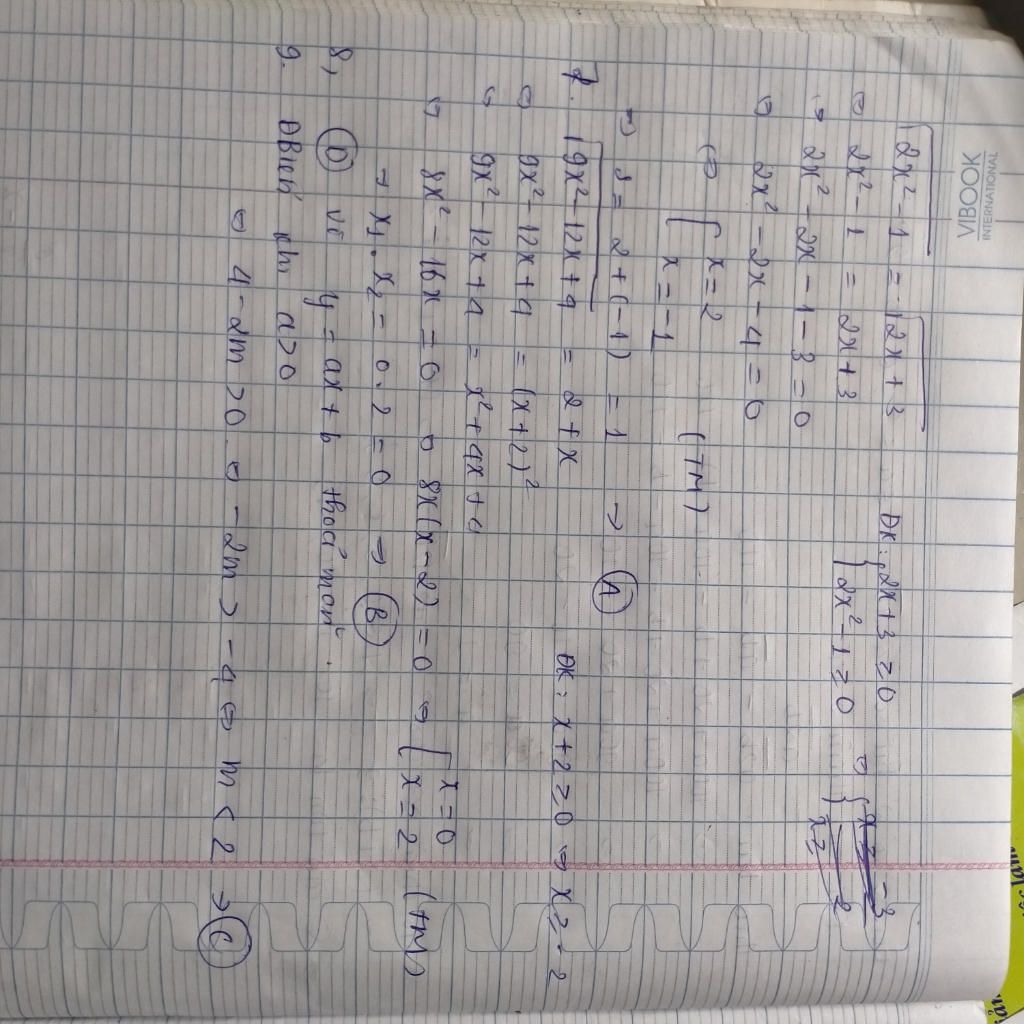 VIBOOK
INTERNATIONAL
√2x² - 1 = √2x + 3 ĐK: { 2x + 3 ≥ 0
{ 2x² - 1 ≥ 0
⇔ 2x² - 1 = 2x + 3
⇔ 2x² - 2x - 1 - 3 = 0
⇔ 2x² - 2x - 4 = 0
⇔ [ x = 2
[ x = -1 (TM)
⇒ S = 2 + (-1) = 1 → (A)
7. √9x² - 12x + 4 = 2 + x ĐK: x + 2 ≥ 0 ⇔ x ≥ -2
⇔ 9x² - 12x + 4 = (x + 2)²
⇔ 9x² - 12x + 4 = x² + 4x + 4
⇔ 8x² - 16x = 0 ⇔ 8x(x - 2) = 0 ⇔ [ x = 0
[ x = 2 (TM)
→ x₁ . x₂ = 0 . 2 = 0 → (B)
8, (D) vì y = ax + b thoả mãn.
9. ĐBiến khi a > 0
⇔ 4 - 2m > 0 ⇔ -2m > -4 ⇔ m < 2 → (C)